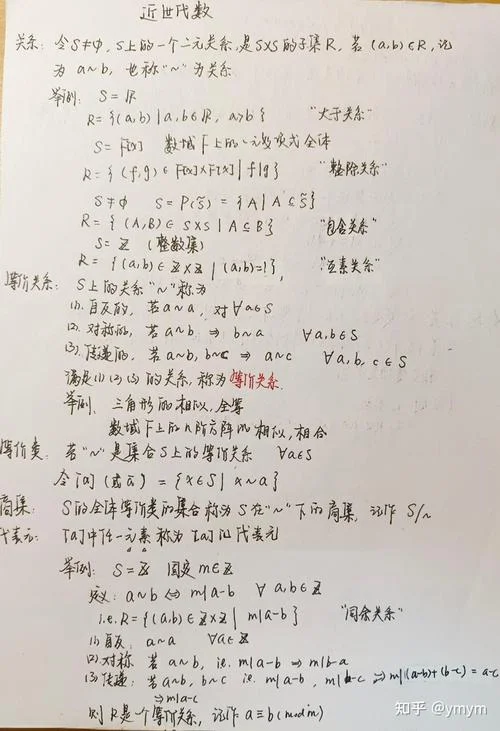 近世代数
关系: 令S≠φ, S上的一个二元关系,是S×S的子集R, 若(a,b)∈R, 记
为 a~b, 也称"~"为关系.
举例: S=ℝ
R={(a,b)|a,b∈ℝ, a>b} "大于关系"
S=F[x] 数域F上的一元多项式全体
R={(f,g)∈F[x]×F[x]|f|g} "整除关系"
S≠φ S=P(S̃)={A|A⊆S̃}
R={(A,B)∈S×S|A⊆B} "包含关系"
S=ℤ (整数集)
R={(a,b)∈ℤ×ℤ|(a,b)=1}, "互素关系"
等价关系: S上的关系"~"称为
(1). 自反的, 若a~a, 对∀a∈S
(2). 对称的, 若a~b ⇒ b~a ∀a,b∈S
(3). 传递的, 若a~b, b~c ⇒ a~c ∀a,b,c∈S
满足(1)(2)(3)的关系, 称为等价关系.
举例, 三角形的相似, 全等
数域F上的n阶方阵的相似, 相合
等价类: 若"~"是集合S上的等价关系 ∀a∈S
令[a](或ā)={x∈S|x~a}
商集: S的全体等价类的集合称为S在"~"下的商集, 记作 S/~
代表元: [a]中任一元素称为[a]的代表元
举例: S=ℤ 固定m∈ℤ
定义: a~b ⇔ m|a-b ∀a,b∈ℤ
i.e. R={(a,b)∈ℤ×ℤ|m|a-b} "同余关系"
(1) 自反: a~a ∀a∈ℤ
(2) 对称 若a~b, i.e. m|a-b ⇒ m|b-a
(3) 传递: 若a~b, b~c i.e. m|a-b, m|b-c ⇒ m|(a-b)+(b-c)=a-c
⇒ m|a-c
则R是一个等价关系, 记作 a≡b(mod m)
知乎 @ymym